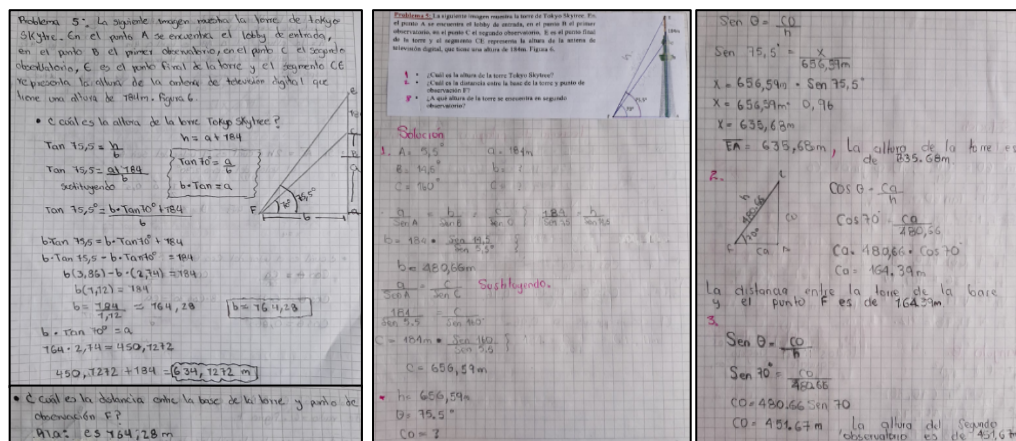 Problema 5: La siguiente imagen muestra la torre de tokyo
Skytre. En el punto A se encuentra el lobby de entrada,
en el punto B el primer observatorio, en el punto C el segundo
observatorio, E es el punto final de la torre y el segmento CE
representa la altura de la antena de televisión digital que
tiene una altura de 184m. Figura 6.
• ¿cuál es la altura de la torre Tokyo Skytree?
h = a + 184
Tan 75,5 = h/b
Tan 70° = a/b
b • Tan = a
Tan 75,5 = a+184/b
sustituyendo
Tan 75,5° = b • Tan 70° + 184/b
b Tan 75,5 = b • Tan 70° + 184
b • Tan 75,5 - b • Tan 70° = 184
b(3,86) - b • (2,74) = 184
b(1,12) = 184
b = 184/1,12 = 164,28
b = 164,28
b • Tan 70° = a
164 • 2,74 = 450,1272
450,1272 + 184 = 634,1272 m
F 70° 75,5° b
• ¿cuál es la distancia entre la base de la torre y punto de
observación F?
Rta: es 164,28 m
Problema 5: La siguiente imagen muestra la torre de Tokyo Skytree. En
el punto A se encuentra el lobby de entrada, en el punto B el primer
observatorio, en el punto C el segundo observatorio, E es el punto final
de la torre y el segmento CE representa la altura de la antena de
televisión digital, que tiene una altura de 184m. Figura 6.
1 • ¿Cuál es la altura de la torre Tokyo Skytree?
2 • ¿Cuál es la distancia entre la base de la torre y punto de
observación F?
3 • ¿A qué altura de la torre se encuentra en segundo
observatorio?
Solución
1. A = 5,5° a = 184m
B = 14,5° b = ?
C = 160° C = ?
a/Sen A = b/Sen B = c/Sen C
b = 184 • Sen 14,5/Sen 5,5°
b = 480,66m
a/Sen A = c/Sen C Sustituyendo.
184/Sen 5.5 = c/Sen 160°
C = 184m • Sen 160/Sen 5,5
C = 656,59m
• h = 656,59m
θ = 75.5°
CO = ?
Sen θ = CO/h
Sen 75,5° = X/656,59m
X = 656,59m • Sen 75,5°
X = 656,59m • 0,96
X = 635,68m
EA = 635,68m, La altura de la torre es
de 635.68m.
2.
h 480.66 CO 70° ca
Cos θ = ca/h
Cos 70° = ca/480,66
Ca = 480,66 • Cos 70°
Ca = 164.39m
La distancia entre la torre de la base
y el punto F es de 164.39m.
3.
Sen θ = CO/h
Sen 70° = CO/480.66
CO = 480.66 Sen 70
CO = 451.67m La altura del segundo
observatorio es de 451,67m